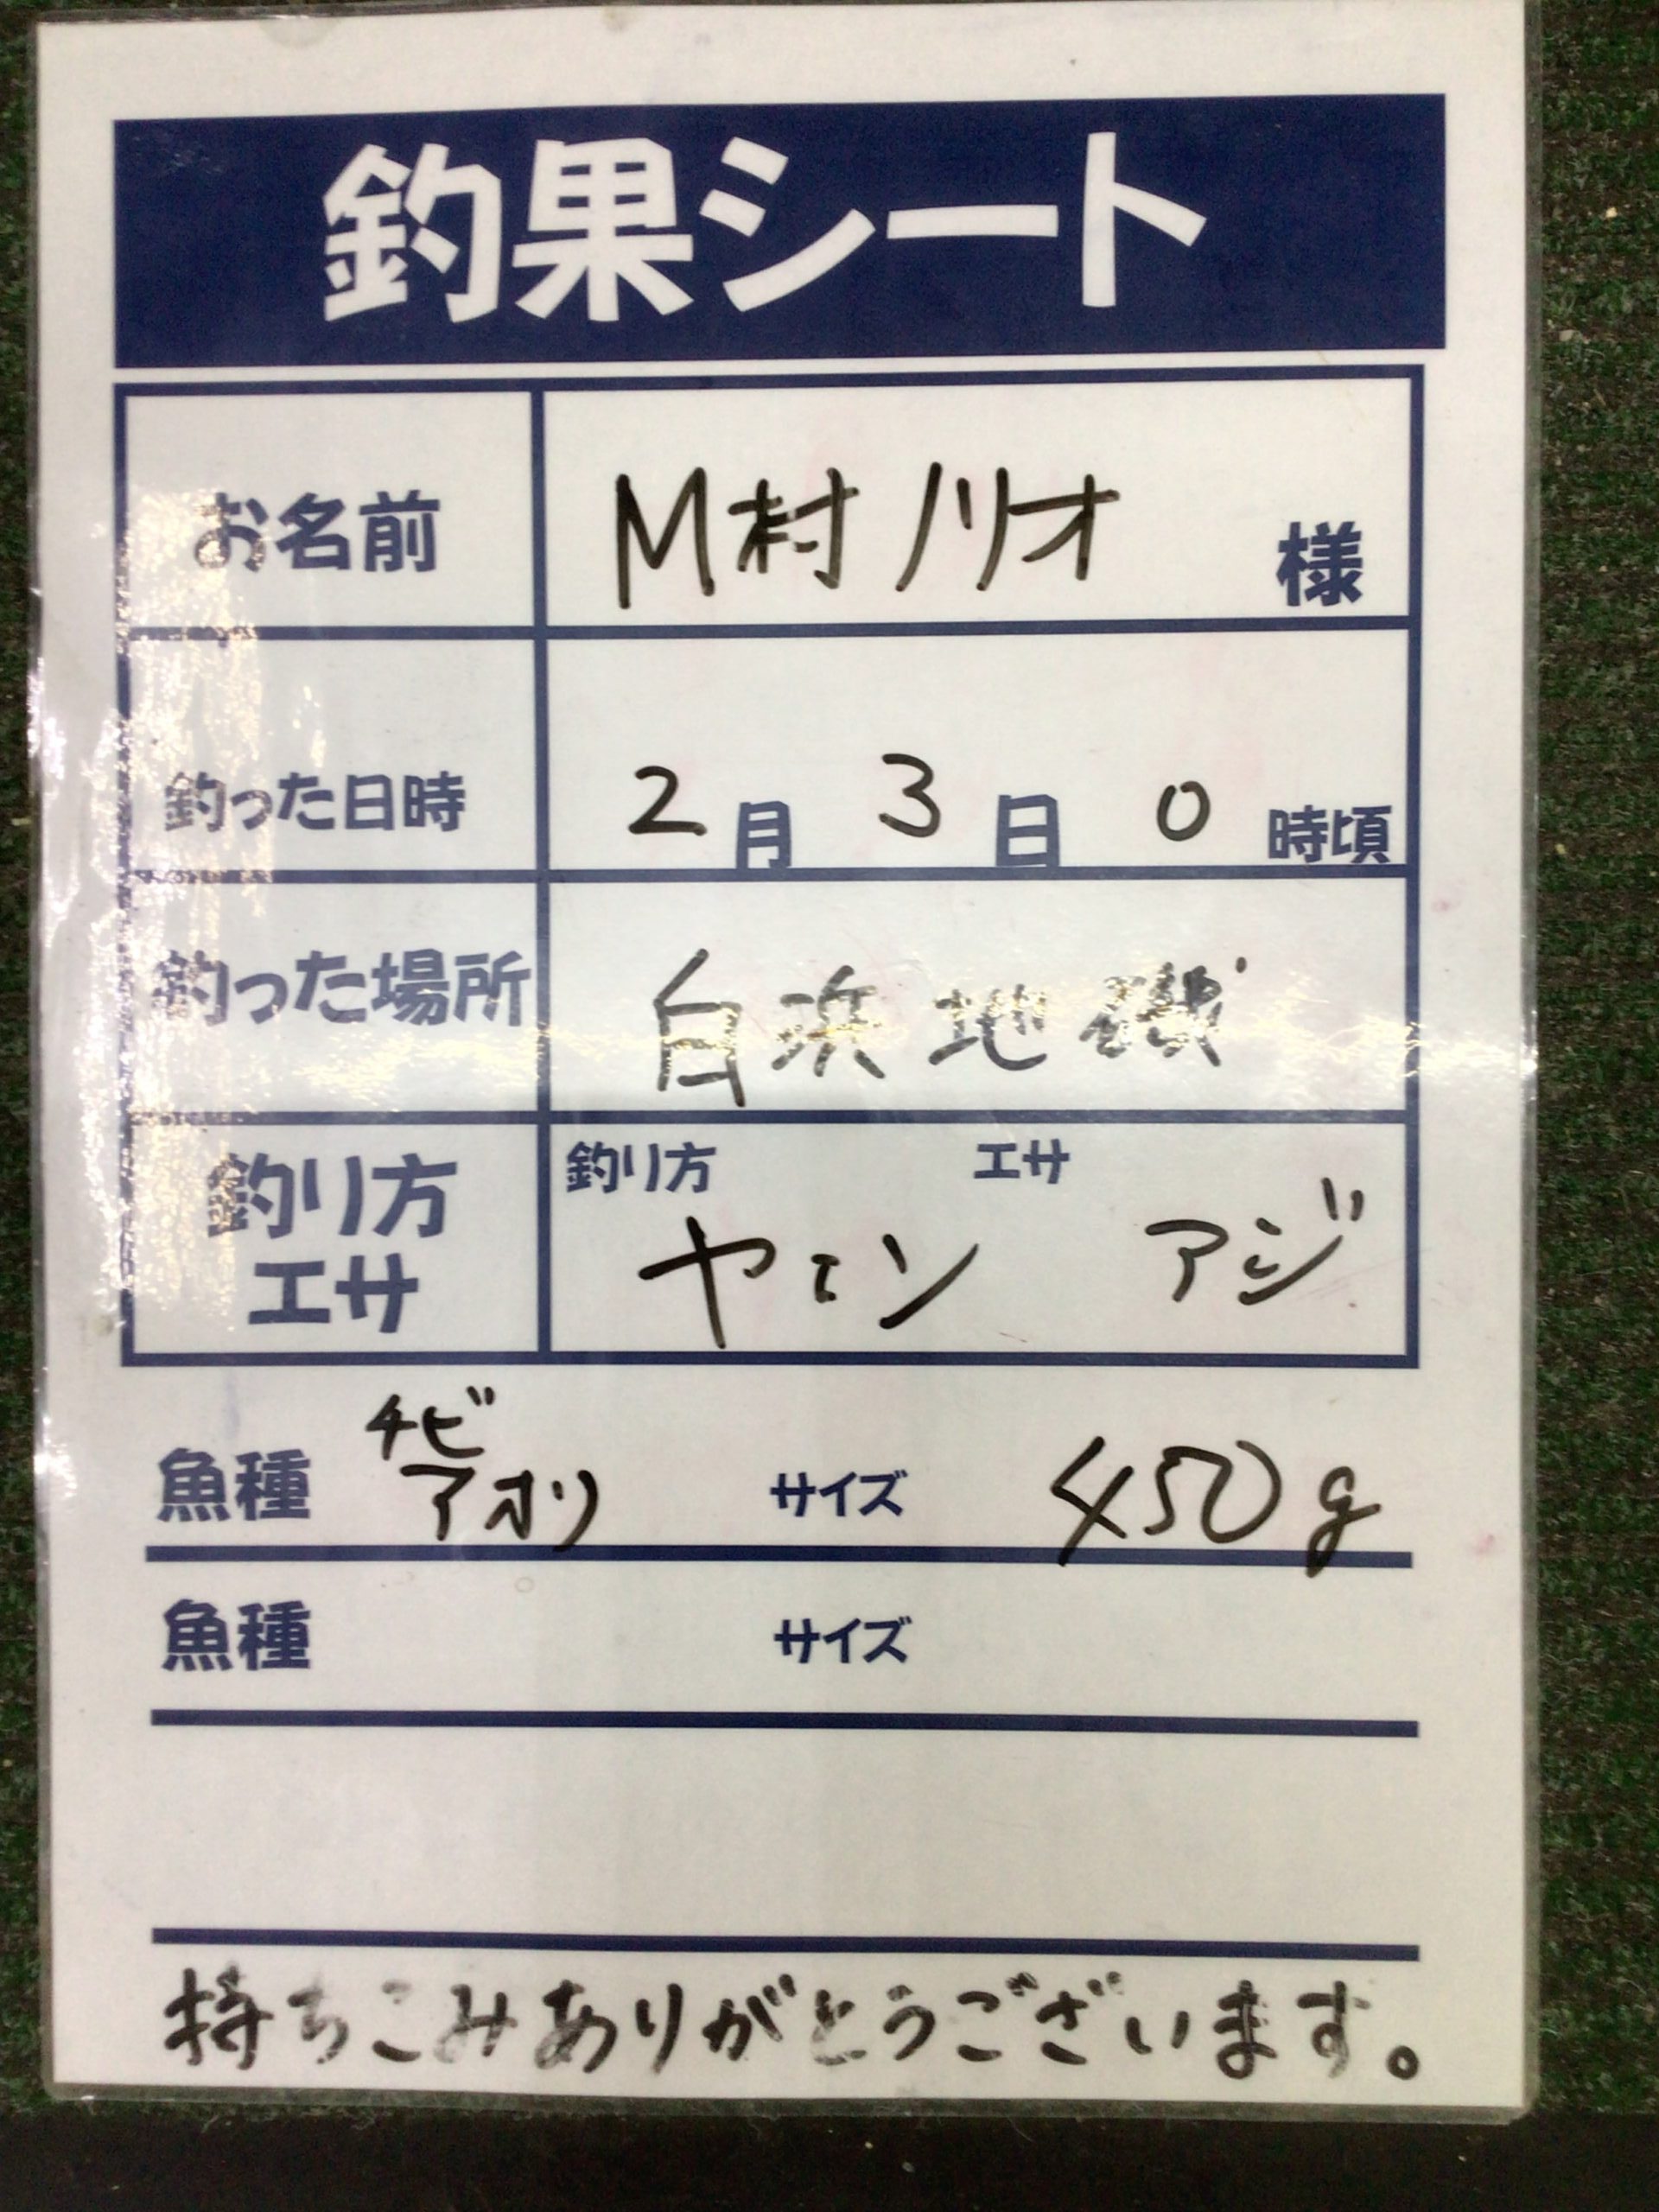 釣果シート
お名前 M村ノリオ 様
釣った日時 2月 3日 0時頃
釣った場所 白浜地磯
釣り方 エサ
釣り方 エサ
ヤエン アジ
チビ
魚種 アオリ サイズ 450g
魚種 サイズ
持ちこみありがとうございます。